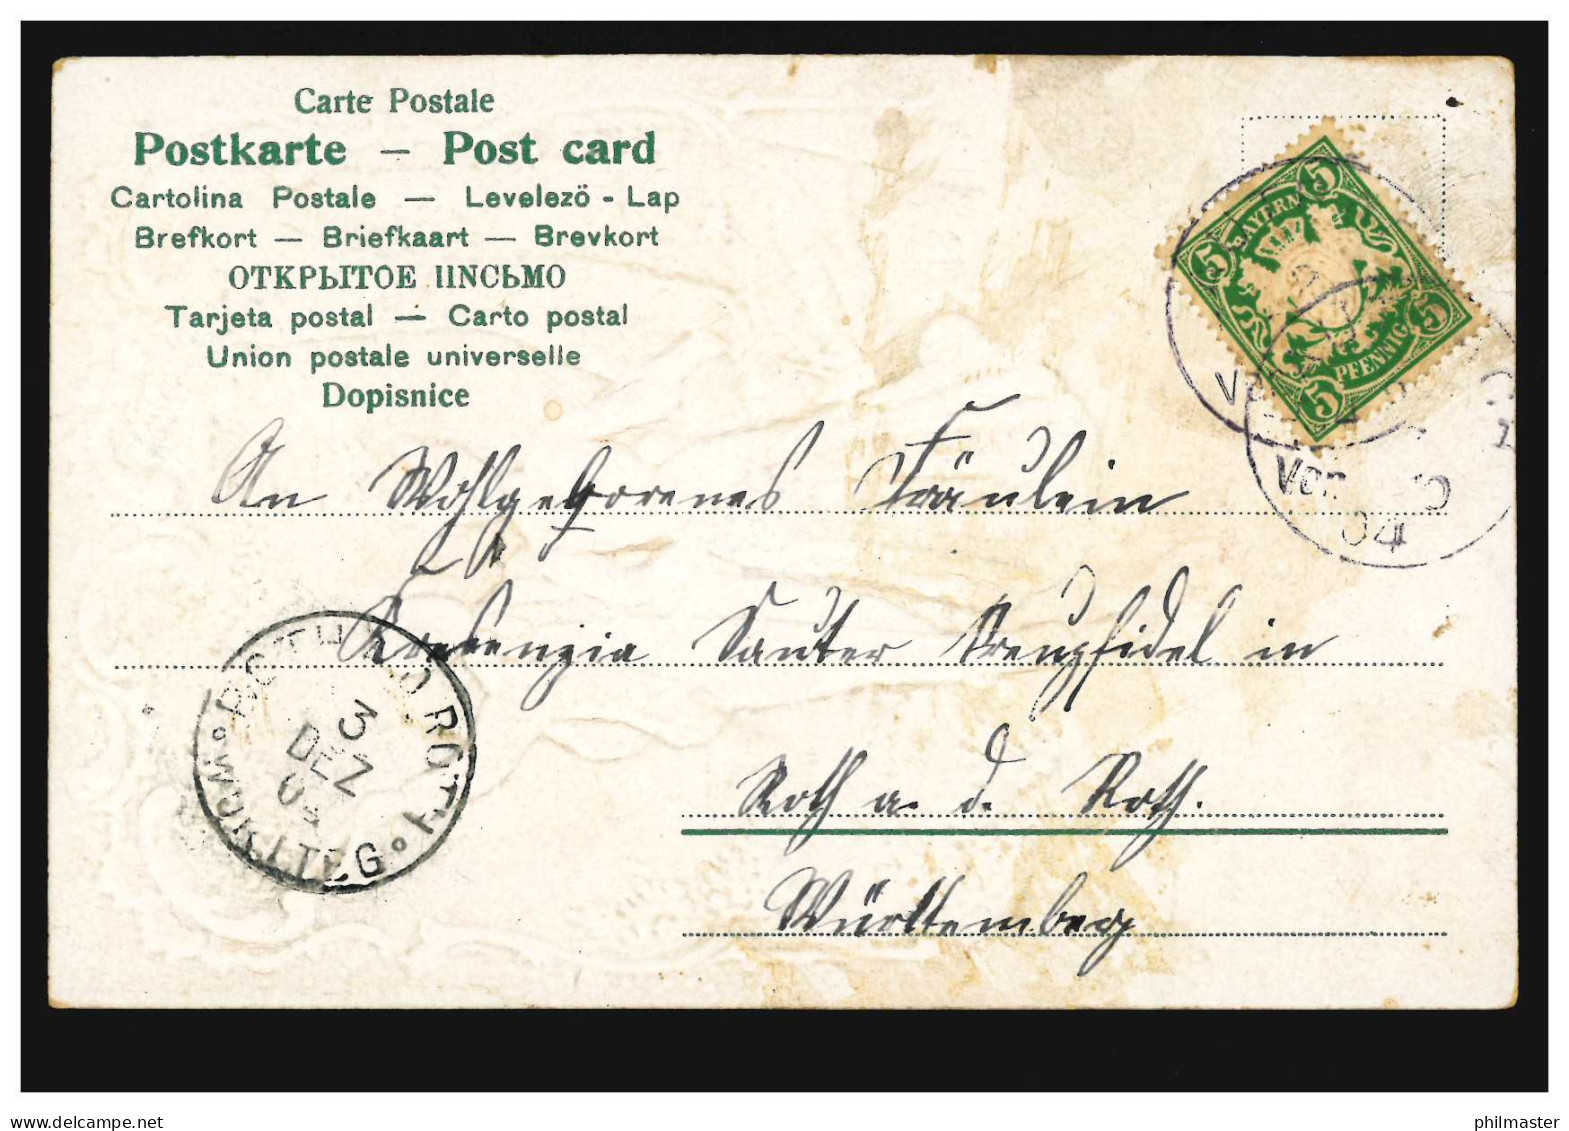 Carte Postale
Postkarte — Post card
Cartolina Postale — Levelezö - Lap
Brefkort — Briefkaart — Brevkort
ОТКРЫТОЕ ПИСЬМО
Tarjeta postal — Carto postal
Union postale universelle
Dopisnice
5
BAYERN
5
5
PFENNIG
5
Vor
04
An Wohlgeborenes Fräulein
Kreszenzia Sauter in
Roth a. d. Roth.
Württemberg
ROTH
3
DEZ
04
delcampe.net
philmaster